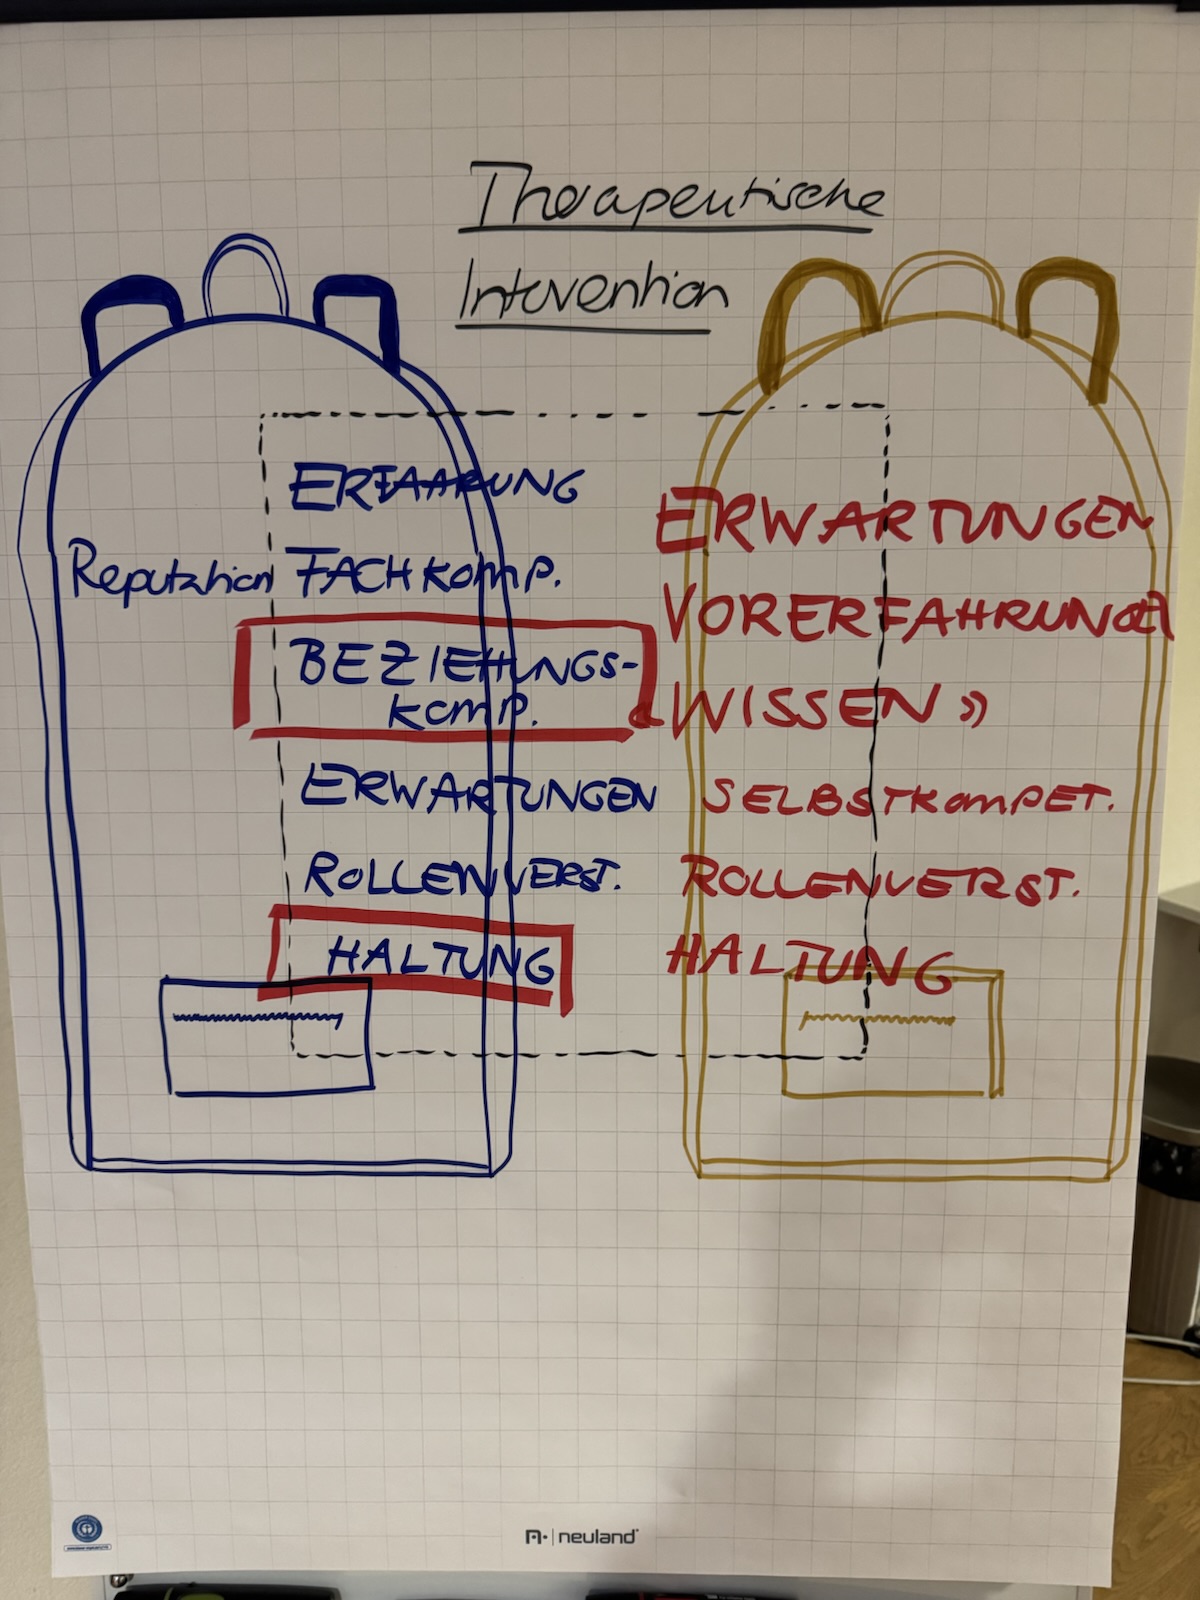 Therapeutische
Intervention
ERFAHRUNG
Reputation FACHkomp.
BEZIEHUNGS-
komp.
ERWARTUNGEN
ROLLENVERST.
HALTUNG
ERWARTUNGEN
VORERFAHRUNGEN
«WISSEN»
SELBSTKOMPET.
ROLLENVERST.
HALTUNG
neuland